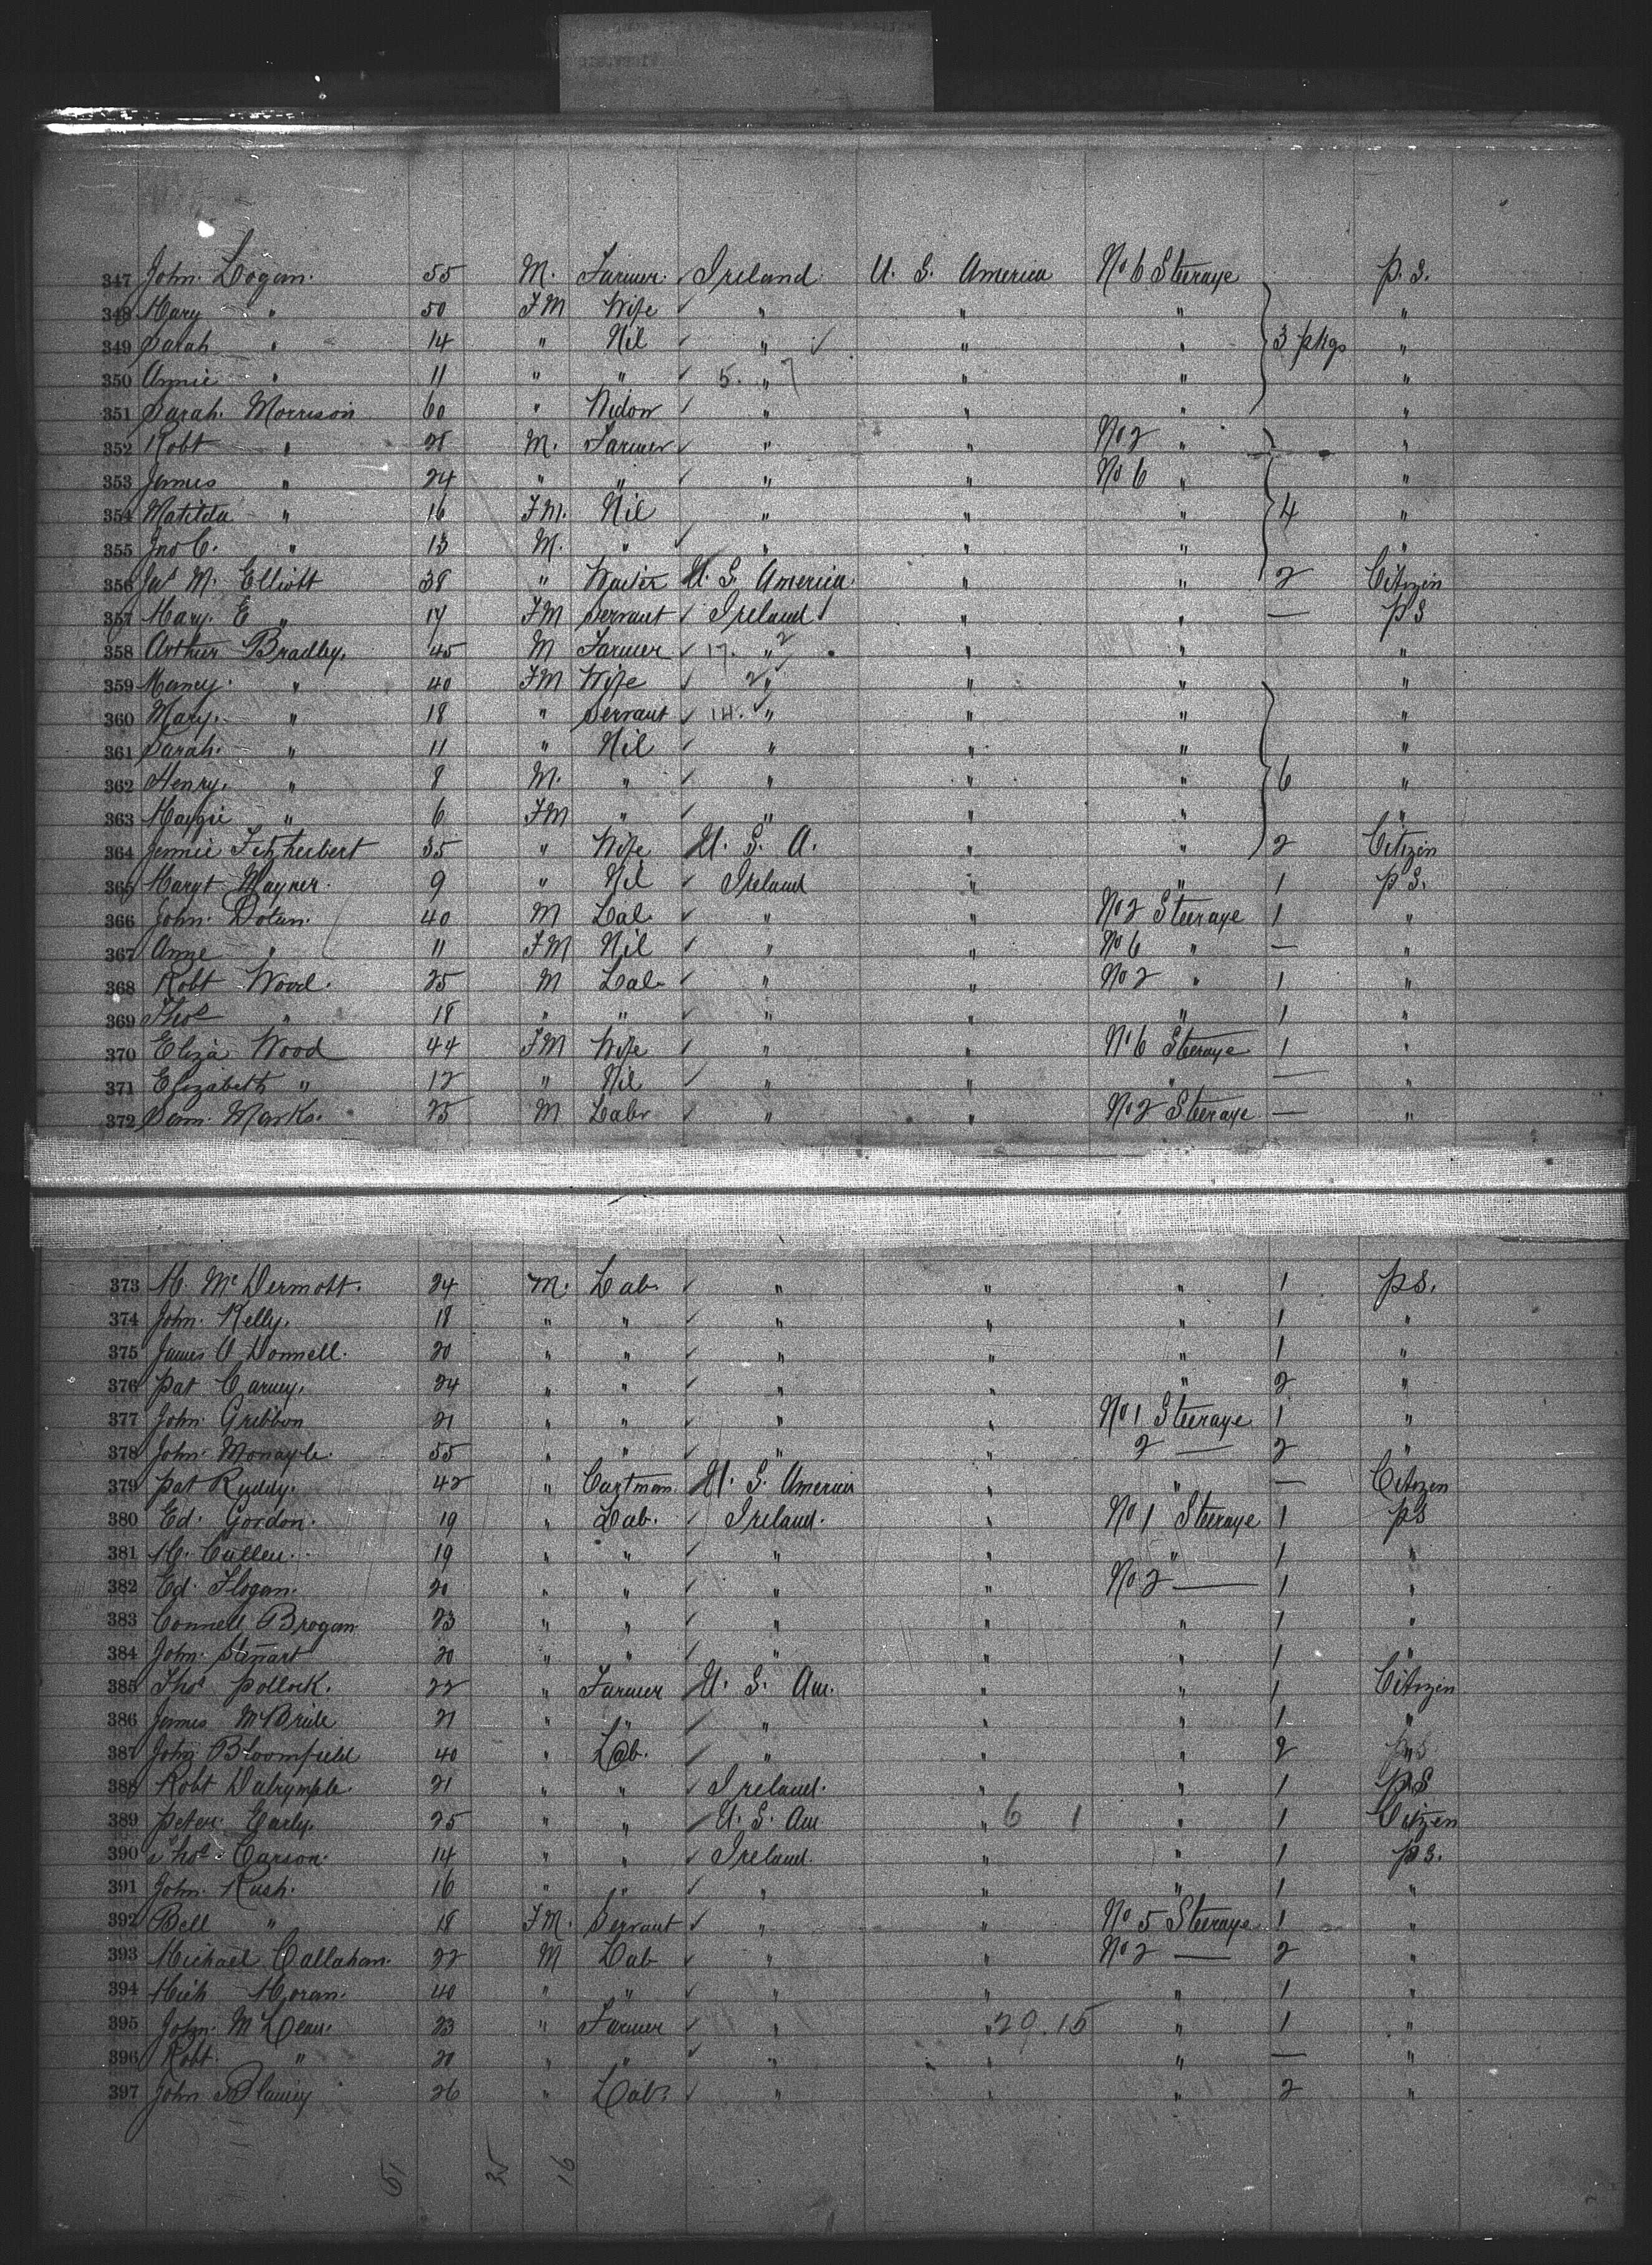 347 John Logan. 55 M. Farmer. ✓ Ireland. U. S. America No 6 Steerage p. S.
348 Mary " 50 FM Wife ✓ " " " "
349 Sarah " 14 " Nil ✓ " ✓ " " 3 pkgs "
350 Annie " 11 " " ✓ 5. " 7 " " "
351 Sarah. Morrison 60 " Widow ✓ " " " "
352 Robt " 28 M. Farmer ✓ " " No 2 " "
353 James " 24 " " ✓ " " No 6 " "
354 Matilda " 16 FM. Nil " " " 4 "
355 Jno C. " 13 M. " ✓ " " " "
356 M. Elliott 38 " U. S. America " " 2 Citizen
357 Mary. E " 17 FM Servant ✓ Ireland " " — pS
358 Arthur Bradley. 45 M Farmer ✓ 17. " " " "
359 " 40 FM Wife ✓ " " " "
360 Mary. " 18 " Servant ✓ 14. " " " "
361 Sarah. " 11 " Nil ✓ " " " "
362 Henry. " 8 M. " ✓ " " " 6 "
363 Maggie " 6 FM " ✓ " " " "
364 Jennie Fitzherbert 35 " Wife U. S. A. " " 2 Citizen
365 Margt Mayner. 9 " Nil ✓ Ireland " " 1 p S.
366 John. Dolan. 40 M Lab. ✓ " " No 2 Steerage 1 "
367 Anne " 11 FM Nil ✓ " " No 6 " — "
368 Robt Wood. 25 M Lab. ✓ " " No 2 " 1 "
369 Thos " 18 " " ✓ " " " 1 "
370 Eliza Wood 44 FM Wife ✓ " " No 6 Steerage 1 "
371 Elizabeth " 12 " Nil ✓ " " " — "
372 Sam. Marks. 25 M Labr ✓ " " No 2 Steerage — "
373 M. McDermott. 24 M. Lab. ✓ " " " 1 pS.
374 John. Kelly. 18 " " ✓ " " " 1 "
375 James O Donnell. 20 " " ✓ " " " 1 "
376 Pat Carney. 24 " " ✓ " " " 2 "
377 John Gribbon 21 " " ✓ " " No 1 Steerage 1 "
378 John. Monagle. 55 " " ✓ " " 2 — 2 "
379 Pat Ruddy. 42 " Cartman U. S. America " " — Citizen
380 Ed. Gordon. 19 " Lab. ✓ Ireland. " No 1 Steerage 1 pS
381 M. Cullen. 19 " " ✓ " " " 1 "
382 Ed. Flogan. 20 " " ✓ " " No 2 — 1 "
383 Connell Brogan 23 " " ✓ " " " 1 "
384 John. Stewart 20 " " ✓ " " " 1 "
385 Thos Pollock. 22 " Farmer U. S. Am. " " 1 Citizen
386 James McBride 21 " " ✓ " " " 1 "
387 John Bloomfield 40 " Lab. ✓ " " " 2
388 Robt Dalrymple. 21 " " ✓ Ireland. " " 1 PS
389 Peter. Early. 25 " " ✓ U. S. Am " 6 1 " 1 Citizen
390 Thos. Carson. 14 " " ✓ Ireland. " " 1 pS.
391 John. Rush. 16 " " ✓ " " " 1 "
392 Bell " 18 FM. Servant ✓ " " No 5 Steerage 1 "
393 Michael Callahan. 22 M Lab ✓ " " No 2 — 2 "
394 Mich Moran. 40 " " ✓ " " " 1 "
395 John. McLean. 23 " Farmer ✓ " " 29.15 " 1 "
396 Robt. " 20 " " ✓ " " " — "
397 John Blaney 26 " Lab. ✓ " " " 2 "
51 35 16